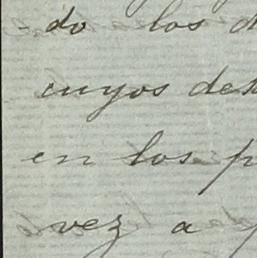 -do los d
cuyos des
en los p
vez a